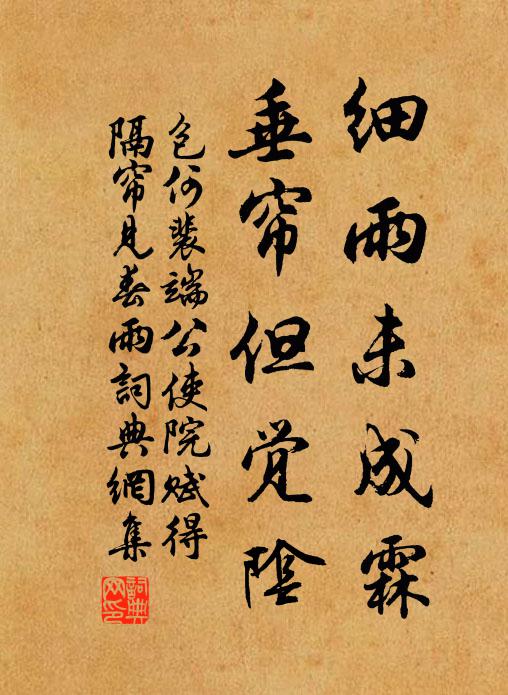 细雨未成霖
垂帘但觉陰
包何裴端公使院赋得
隔帘見春雨詞典網集
詞典网印